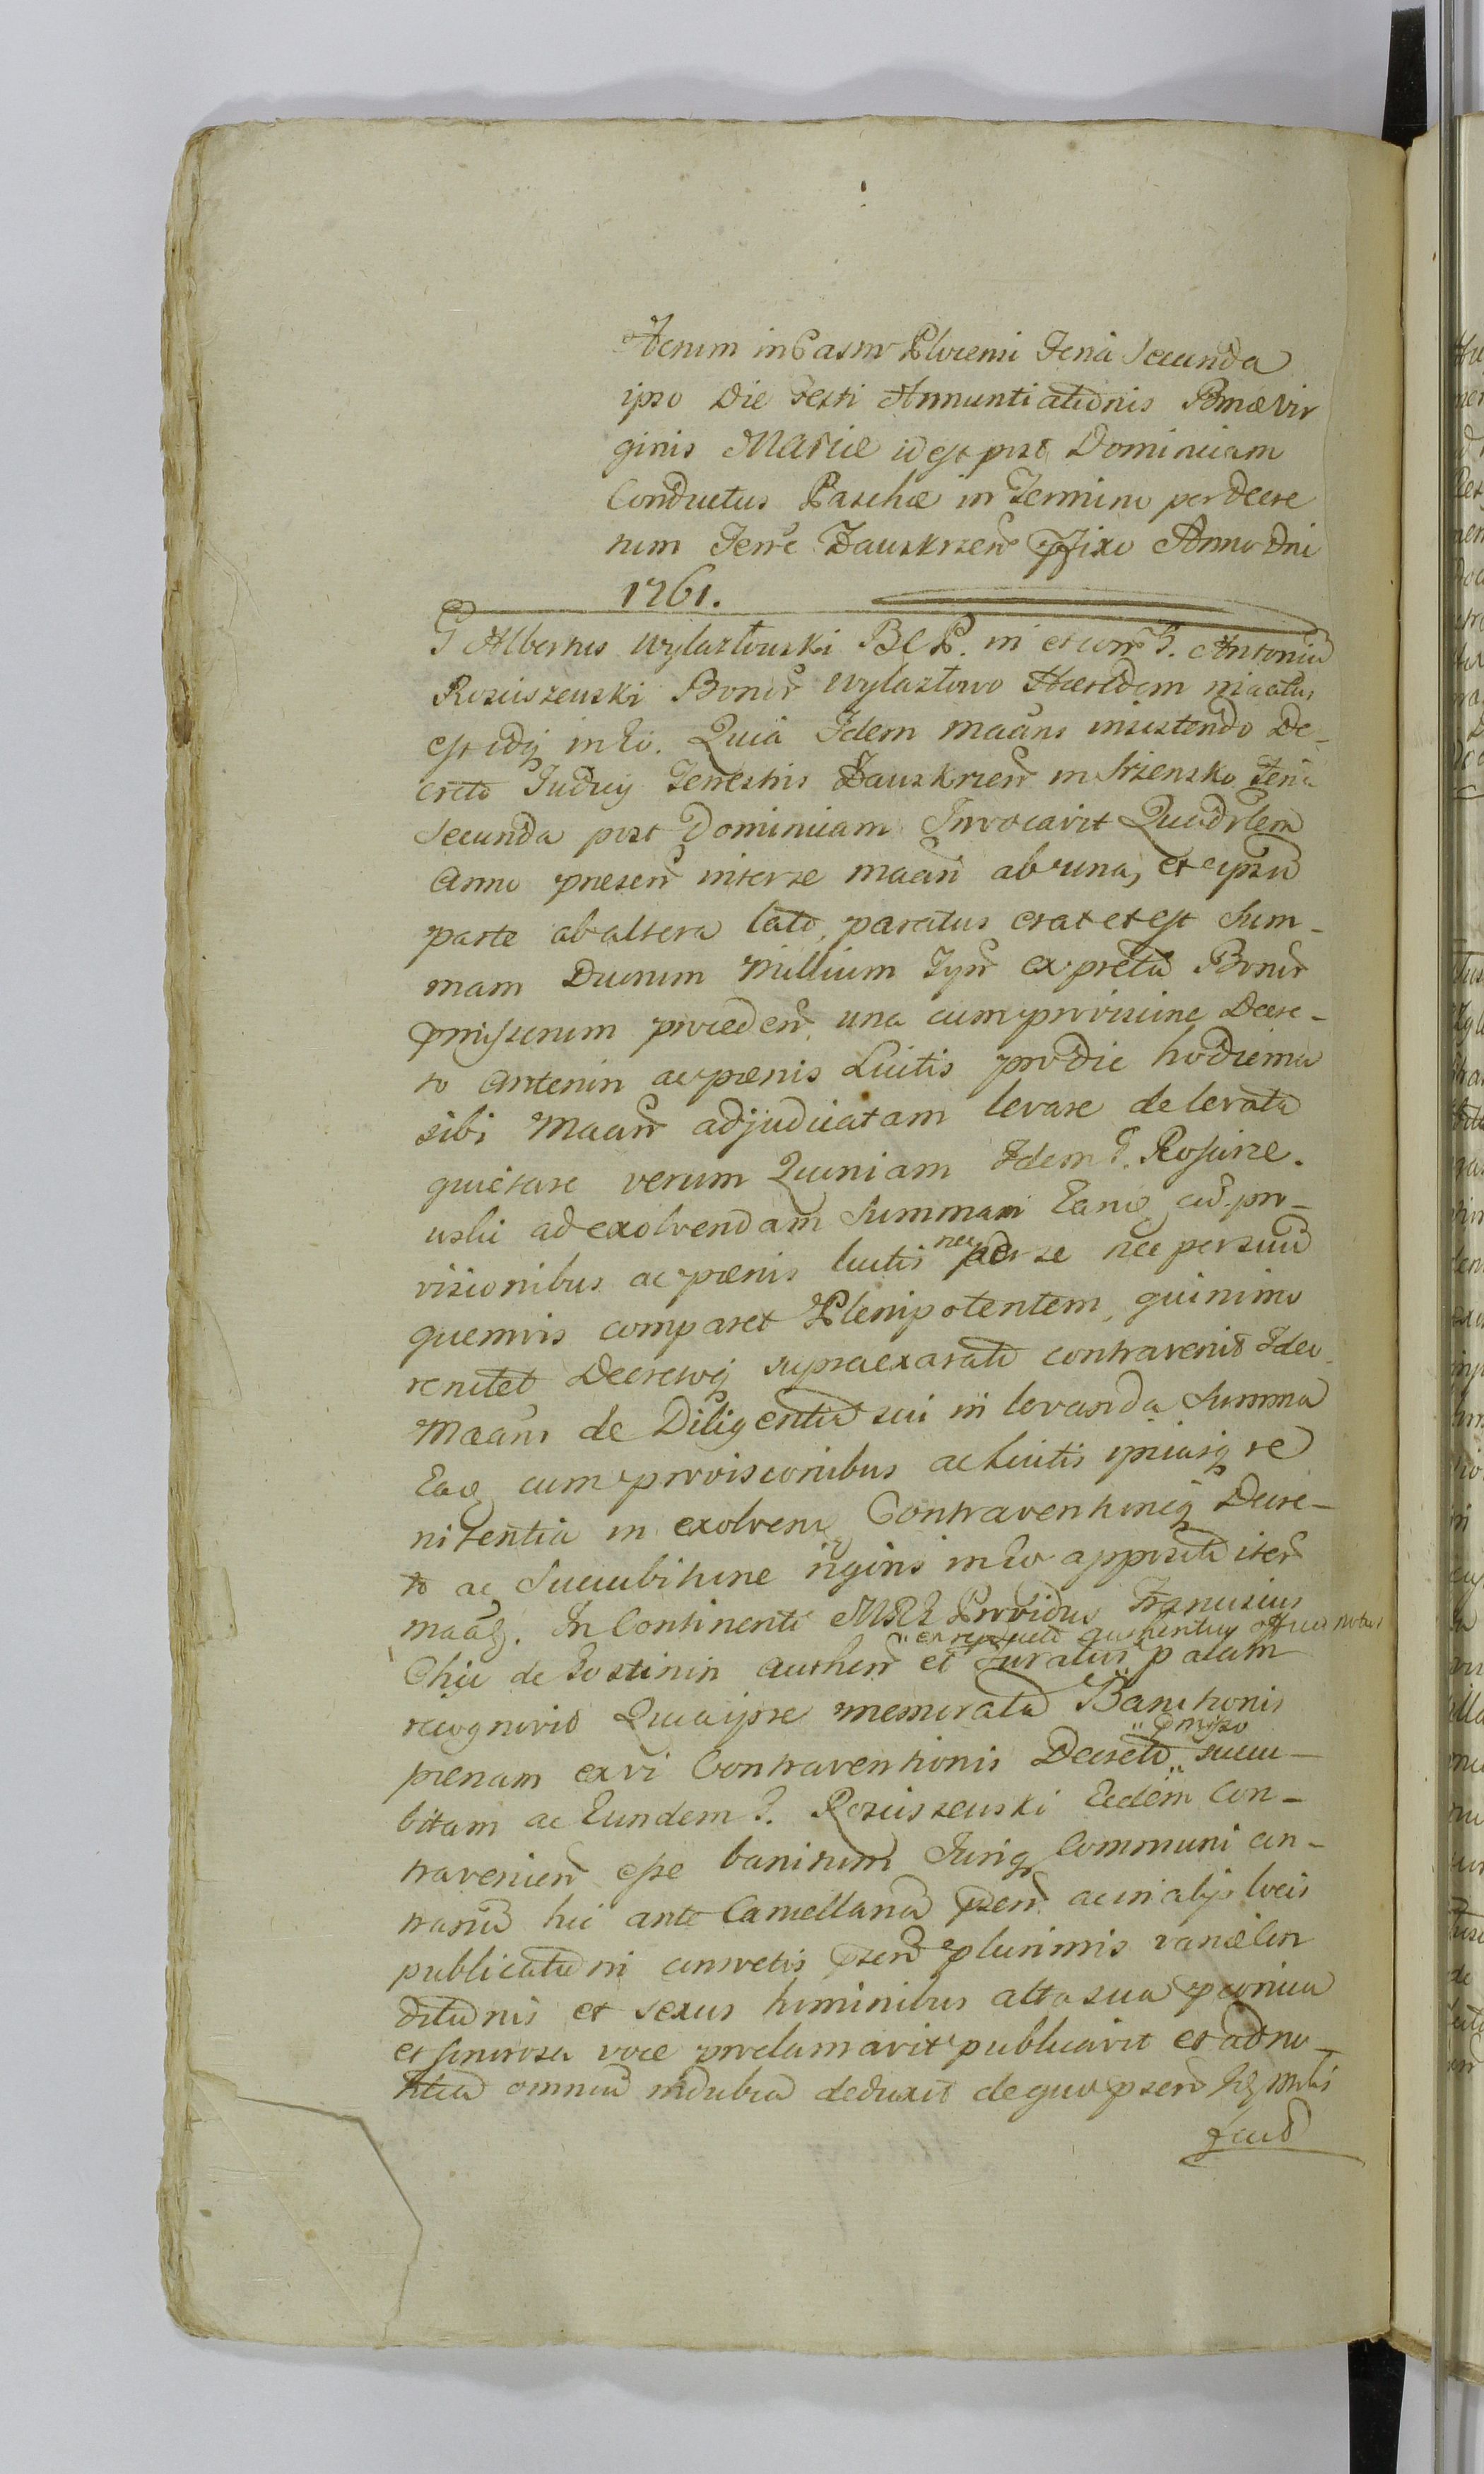 Actum in Castro Plocensi Feria Secunda
ipso Die Festi Annuntiationis Bmæ Vir
ginis Mariæ id est post Dominicam
Conductus Paschæ in Termino per Decre
tum Terre Zauskrzen pfixo Anno Dni
1761.
G Albertus Wylazłouski B C P. in et con G. Antoniu
Rosciszewski Bonor Wylazłowo Hæredem
est idq in Eo. Quia Idem maans insistendo De-
creto Judicij Terrestris Zauskrzen in Srzensko Feria
Secunda post Dominicam Invocavit Quadrlem
Anno præsen inter se maan ab una, et ipsu
parte ab altera lato, paratus erat et est Sum-
mam Duorum Millium Tynf ex pretio Bonor
pmissorum proceden una cum provisione Decre-
to ac pænis Luitis pro die hodierna
sibi Maan adjudicatam levare de levata
quietare verum Quoniam Idem G. Rościsze.
uski ad exolvendam Summam Eanq cu pro-
visionibus ac pænis luitis nec per se nec per suu
quemvis comparet Plenipotentem, quinimo
renitet Decretoq supraexarato contravenit Ideo
Maans de Diligentia sui in levanda Summa
Eaq cum provisionibus ac luitis ipsiusq re
nitentia in exolven Contraventioneq Decre-
to ac Succubitione in Eo apposita iter
maaq. In Continenti MRE Providus Franciscus
"en authentus
Chic de Gostinin authen et Juratus palam
recognovit Quia ipse memorata Banitionis
"pmisso
pænam ex vi Contraventionis Decreto" succu-
bitam ac Eundem G. Rosciszewski Eidem Con-
travenien esse banitum Juriq Communi con-
trariu hic ante Cancellaria psen ac in alijs locis
publicationi consvetis psen plurimis variæ Con
ditionis et sexus hominibus alta sua
et sonorosa voce proclamavit publicavit et ad no-
titia omniu indubia deduxit de quo psen